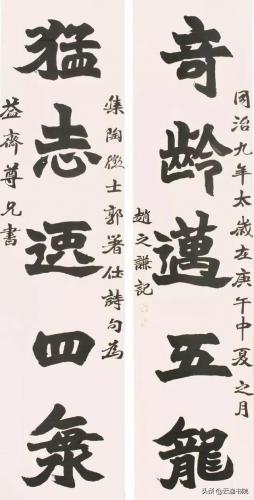 奇齡邁五龍
同治九年太歲在庚午中夏之月
趙之謙記
猛志逸四海
集陶徵士郭著仕詩句為
益齋尊兄書